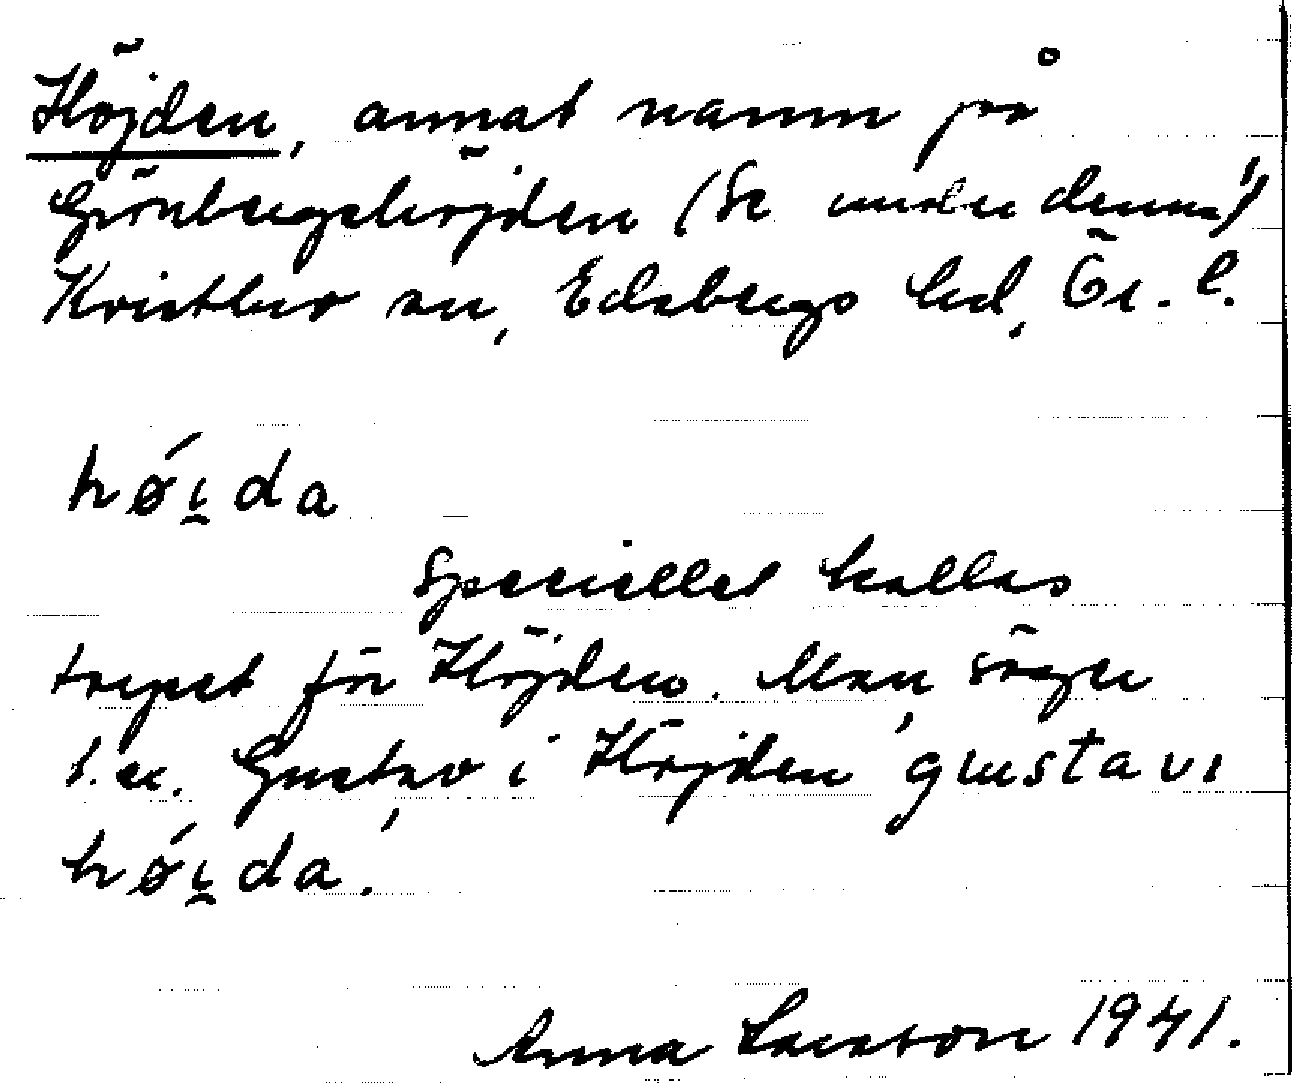 Höjden, annat namn på
Grönbergshöjden (Se under denna!)
Kvistbro sn, Edsbergs hd, Ör. l.
hǿi̯da
Speciellt kallas
torpet för Höjden. Man säger
t.ex. Gustav i Höjden, gustav ı
hǿi̯da.
Anna Larsson 1941.